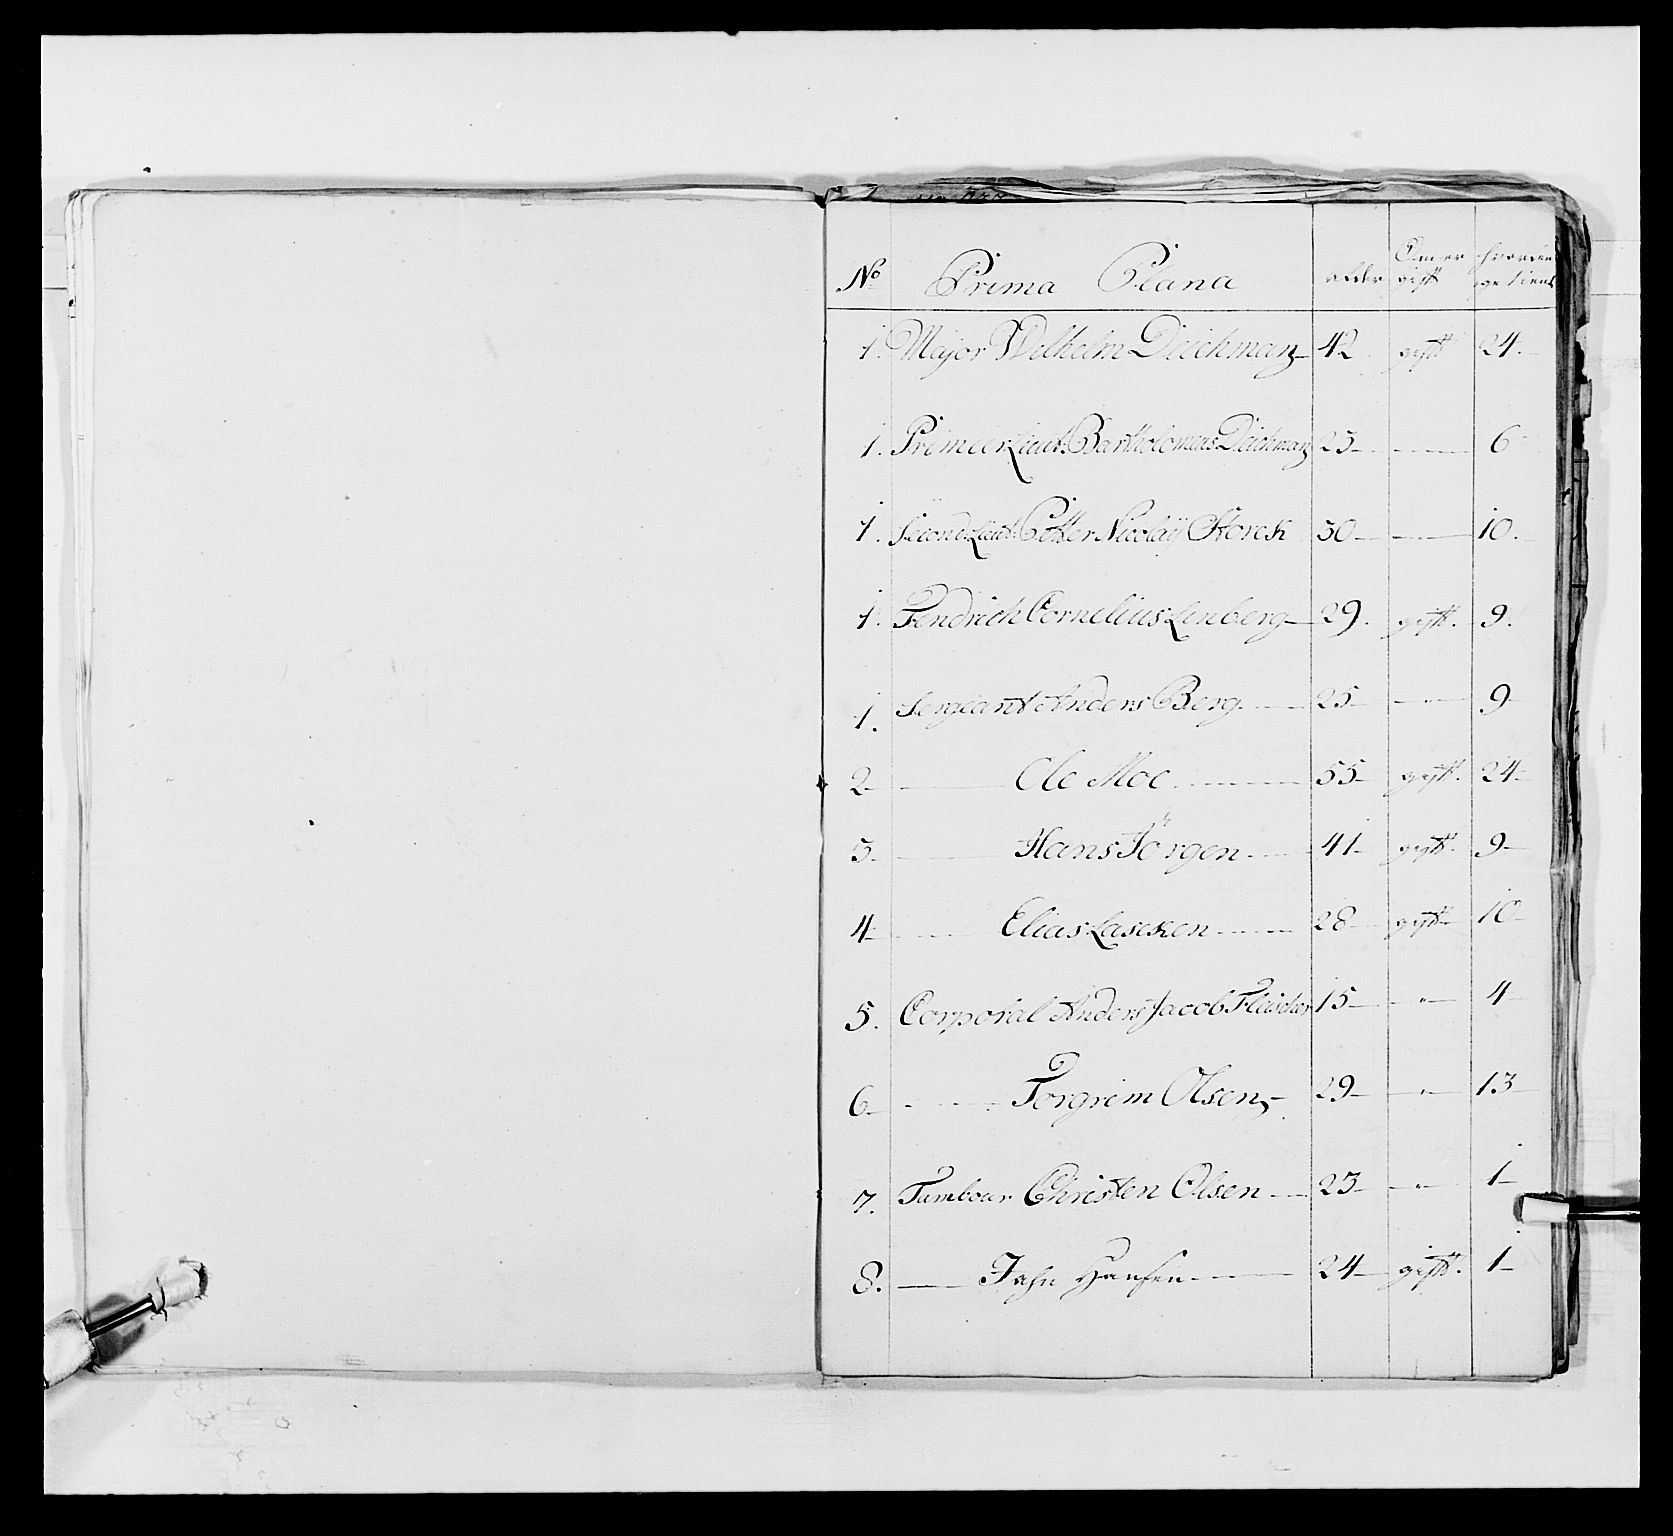 No Prima Plana alder Om er gift hvor længe tient
1. Major Wilhelm Deichman 42 gift 24.
1. Premier Lieut: Bartholomeus Deichman 23 — 6
1. Second Lieut: Petter Nicolaÿ Storck 30 — 10.
1. Fendrich Cornelius Lenberg 29. gift. 9.
1. Sergeant Anders Berg 25 — " — 9
2 — Ole Moe 55 gift. 24
3. — Hans Jörgen 41 gift. 9
4 — Elias Lascken 28 gift 10
5. Corporal Anders Jacob Fleischer 15 — " — 4
6 — Torgrim Olsen 29 — " — 13
7. Tambour Christen Olsen 23 — " — 1
8. — Jahn Hansen 24 gift. 1